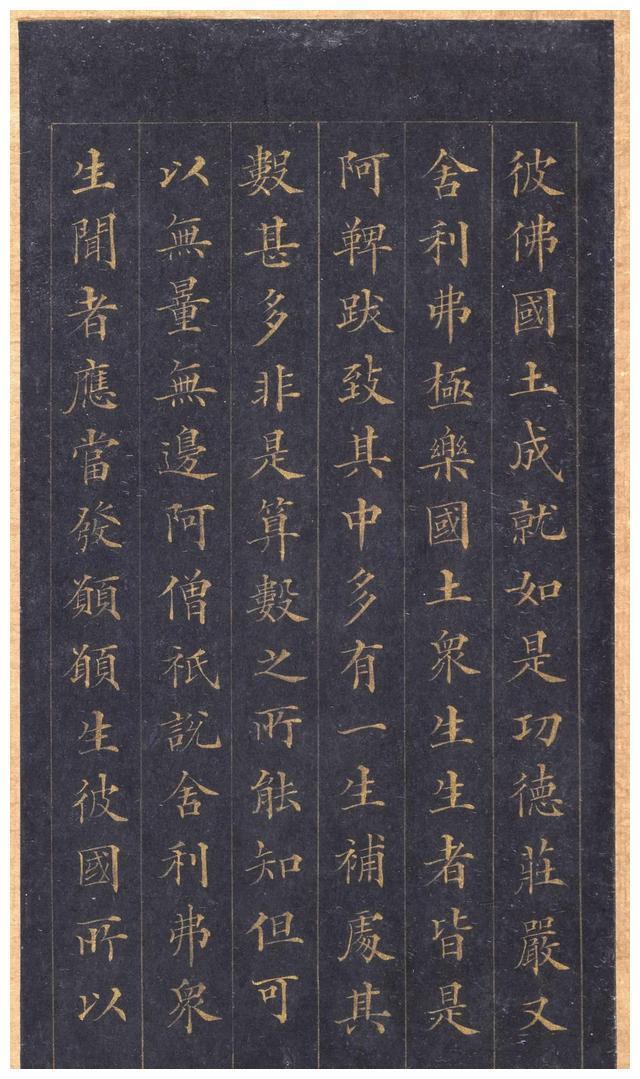 彼佛國土成就如是功德莊嚴又
舍利弗極樂國土衆生生者皆是
阿鞞跋致其中多有一生補處其
數甚多非是算數之所能知但可
以無量無邊阿僧祇說舍利弗衆
生聞者應當發願願生彼國所以